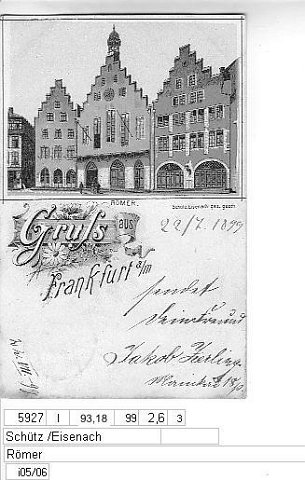 RÖMER.
Schütz Eisenach ges. gesch.
Gruss aus
Frankfurt a/m
22/7. 1899
sendet
dein Freund
Jakob
5927 I 93,18 99 2,6 3
Schütz /Eisenach
Römer
i05/06